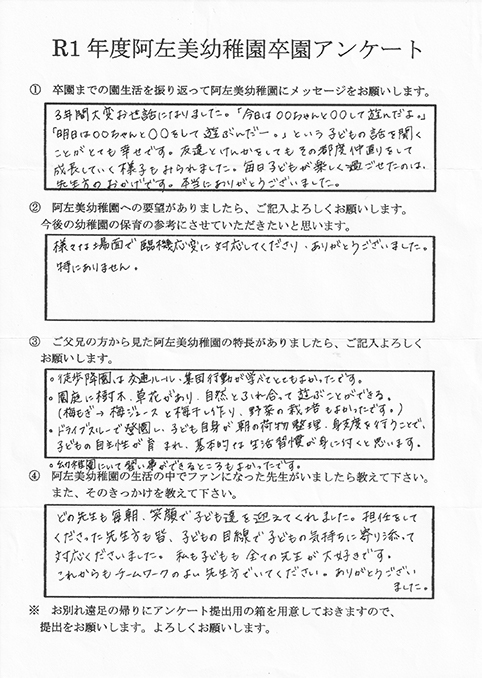 R1 年度阿左美幼稚園卒園アンケート
① 卒園までの園生活を振り返って阿左美幼稚園にメッセージをお願いします。
3年間大変お世話になりました。「今日は〇〇ちゃんと〇〇して遊んだよ。」
「明日は〇〇ちゃんと〇〇をして遊ぶんだー。」という子どもの話を聞く
ことがとても幸せです。友達とけんかをしてもその都度仲直りをして
成長していく様子もみられました。毎日子どもが楽しく過ごせたのは、
先生方のおかげです。本当にありがとうございました。
② 阿左美幼稚園への要望がありましたら、ご記入よろしくお願いします。
今後の幼稚園の保育の参考にさせていただきたいと思います。
様々な場面で臨機応変に対応してくださり、ありがとうございました。
特にありません。
③ ご父兄の方から見た阿左美幼稚園の特長がありましたら、ご記入よろしく
お願いします。
○徒歩降園は交通ルール・集団行動が学べてとてもよかったです。
○園庭に樹木、草花があり、自然とふれ合って遊ぶことができる。
(梅もぎ→梅ジュースと梅干し作り、野菜の栽培もよかったです。)
○ドライブスルーで登園し、子ども自身が朝の荷物整理、身支度を行うことで、
子どもの自主性が育まれ、基本的な生活習慣が身に付くと思います。
○幼稚園にいて習い事ができるところもよかったです。
④ 阿左美幼稚園の生活の中でファンになった先生がいましたら教えて下さい。
また、そのきっかけを教えて下さい。
どの先生も毎朝、笑顔で子ども達を迎えてくれました。担任をして
くださった先生方も皆、子どもの目線で子どもの気持ちに寄り添って
対応くださいました。私も子どもも全ての先生が大好きです。
これからもチームワークのよい先生方でいてください。ありがとうござい
ました。
※ お別れ遠足の帰りにアンケート提出用の箱を用意しておきますので、
提出をお願いします。よろしくお願いします。